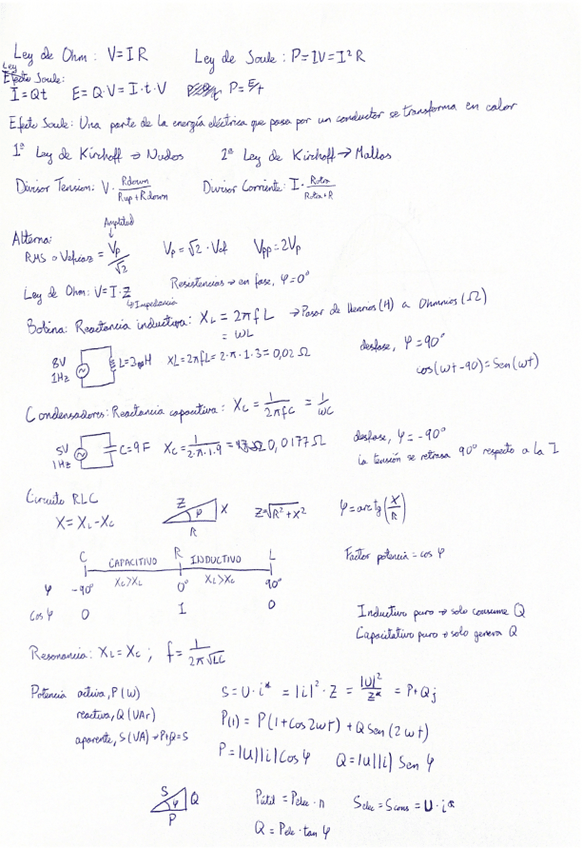 Ley de Ohm: V=IR Ley de Joule: P=IV=I²R
Ley
Efecto Joule:
I=Qt E=Q·V=I·t·V P=E/t
Efecto Joule: Una parte de la energía eléctrica que pasa por un conductor se transforma en calor
1ª Ley de Kirchoff → Nudos 2ª Ley de Kirchoff → Mallas
Divisor Tension: V· Rdown/(Rup+Rdown) Divisor Corriente: I· Rotra/(Rotra+R)
Amplitud
Alterna:
RMS o Veficaz = Vp/√2 Vp=√2·Vef Vpp=2Vp
Ley de Ohm: V=I·Z Resistencias → en fase, φ=0°
↳Impedancia
Bobina: Reactancia inductiva: XL=2πfL → Pasar de Henrios(H) a Ohmnios(Ω)
= ωL
8V 1Hz L=3mH XL=2πfL=2·π·1·3=0,02Ω desfase, φ=90°
cos(ωt-90)=Sen(ωt)
Condensadores: Reactancia capacitiva: Xc = 1/(2πfC) = 1/ωC
5V 1Hz C=9F Xc= 1/(2·π·1·9) = 0,0177Ω desfase, φ=-90°
la tensión se retrasa 90° respecto a la I
Circuito RLC
X=XL-Xc Z φ X R Z=√R²+X² φ=arctg(X/R)
C R L Factor potencia=cos φ
CAPACITIVO INDUCTIVO
Xc>XL XL>Xc
φ -90° 0° 90°
Cos φ 0 1 0 Inductivo puro → solo consume Q
Capacitativo puro → solo genera Q
Resonancia: XL=Xc ; f= 1/(2π√LC)
Potencia activa, P(W) S=U·i* = |i|²·Z = |U|²/Z* = P+Qj
reactiva, Q(VAr) P(t)= P(1+cos2ωt)+QSen(2ωt)
aparente, S(VA) → P+jQ=S P=|U||i|Cos φ Q=|U||i|Sen φ
S φ Q P Pútil=Pelec·n Selec=Scons=U·i*
Q=Pelc·tan φ